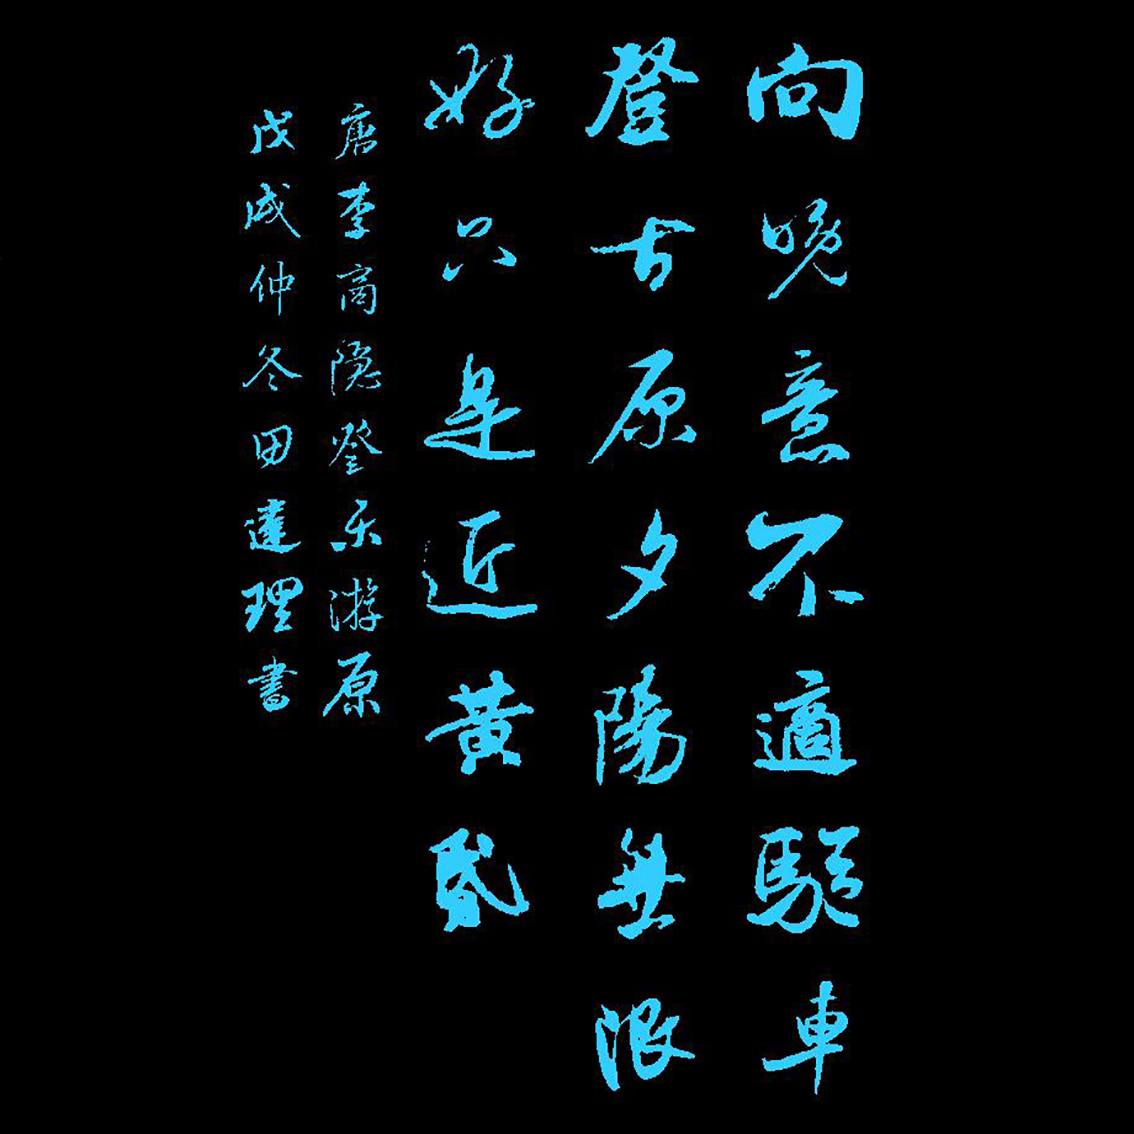 向晚意不適驅車
登古原夕陽無限
好只是近黃昏
唐李商隐登乐游原
戊戌仲冬田達理書